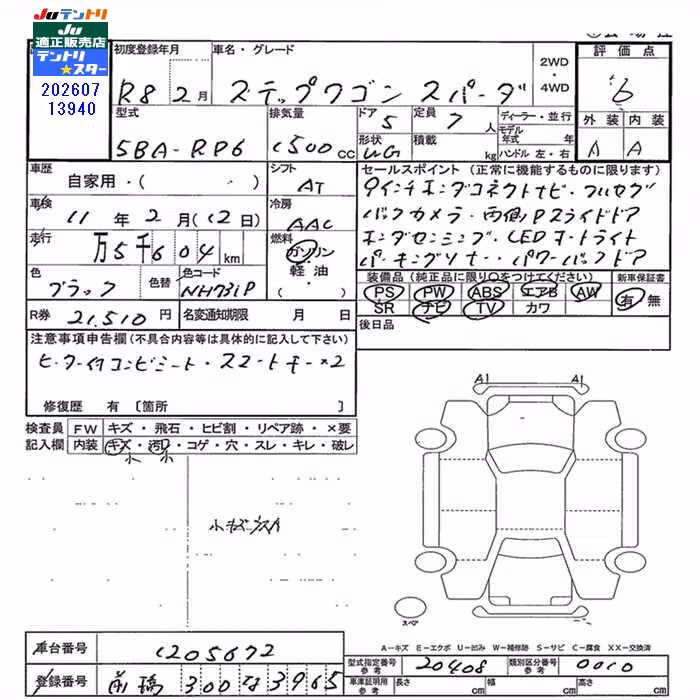 Juテントリ
Ju
適正販売店
テントリ
★スター
202607
13940
初度登録年月
R8 2月
車名・グレード
ステップワゴン スパーダ
2WD
・
4WD
評価点
6
外装 内装
A A
型式
5BA-RP6
排気量
1500cc
ドア
5
定員
7人
形状
WG
積載
kg
ディーラー・並行
モデル
年式 年
ハンドル 左・右
車歴
自家用・( )
シフト
AT
車検
11年2月(12日)
冷房
AAC
走行
万5千604km
燃料
ガソリン
軽油
( )
色
ブラック
色替
色コード
NH731P
R券
21,510円
名変通知期限 月 日
セールスポイント (正常に機能するものに限ります)
9インチホンダコネクトナビ・フルセグ
バックカメラ・両側Pスライドドア
ホンダセンシング・LEDオートライト
パーキングソナー・パワーバックドア
装備品(純正品に限り○をつけてください)
PS PW ABS エアB AW
SR ナビ TV カワ
新車保証書
有 無
後日品
注意事項申告欄(不具合内容等は具体的に記入して下さい)
ヒーター付コンビシート・スマートキー×2
修復歴 有 〔箇所 〕
検査員
記入欄
FW キズ・飛石・ヒビ割・リペア跡・×要
内装 キズ・汚れ・コゲ・穴・スレ・キレ・破レ
小 小
A1 A1
スペア
A-キズ E-エクボ U-凹み W-補修跡 S-サビ C-腐食 XX-交換済
車台番号
1205672
登録番号
前橋 300 な 3965
型式指定番号
参考
20408
類別区分番号
参考
0010
車庫証明用
参考
長さ cm
幅 cm
高さ cm